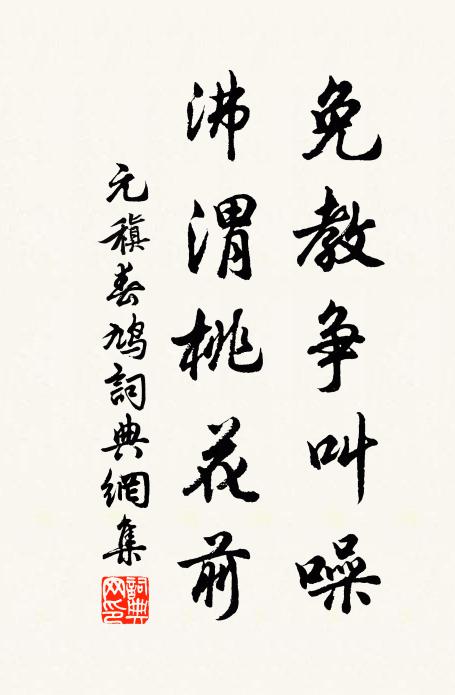 免教争叫噪
沸渭桃花前
元稹春鳩詞典網集
詞典网印